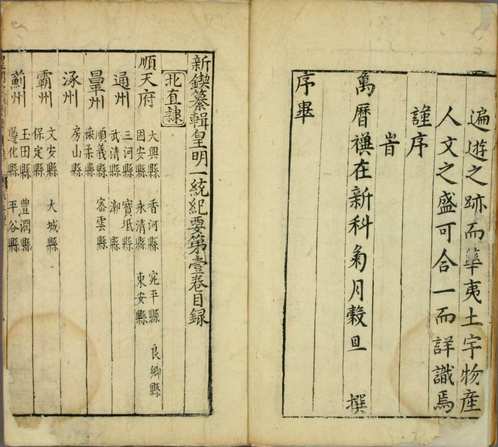 遍遊之跡而華夷土宇物産
人文之盛可合一而詳識焉
謹序
旹
萬曆禩在新科菊月穀旦 撰
序畢
新鍥纂輯皇明一統紀要第壹卷目録
北直隷
順天府 大興縣 香河縣 宛平縣 良鄉縣
固安縣 永清縣 東安縣
通州 三河縣 寳坻縣
武清縣 漷縣
昌平州 順義縣 密雲縣
懷柔縣
涿州 房山縣
霸州 文安縣 大城縣
保定縣
薊州 玉田縣 豐潤縣
遵化縣 平谷縣